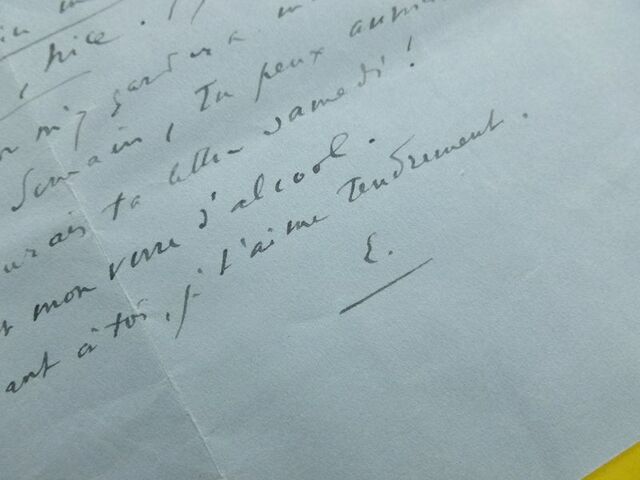 , Nice.
on m'y gardera
demain, Tu peux
ta lettre samedi !
mon verre d'alcool.
ant à toi, je t'aime tendrement.
E.